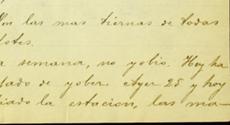 las mas tiernas de todas
dotes.
a semana, no yobio. Hoy ha
dado de yober. Ayer 25 y hoy
iado la estacion, las ma-